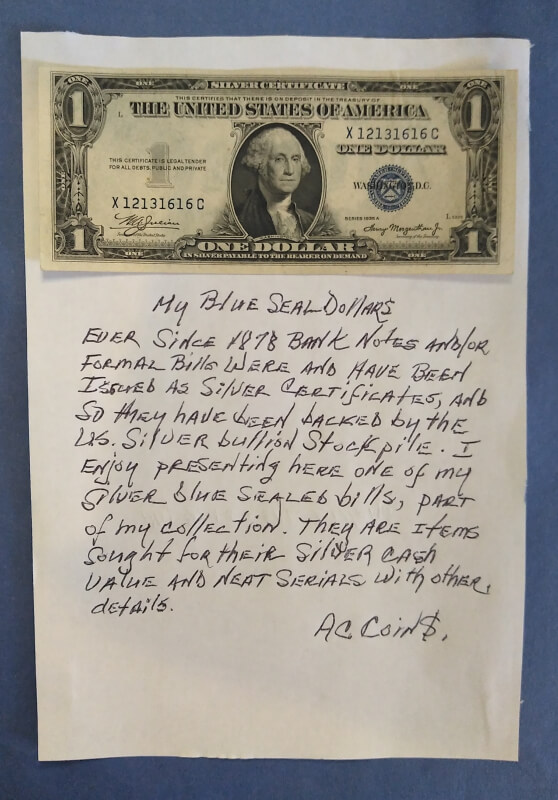 ONE
ONE
SILVER CERTIFICATE
ONE
ONE
THIS CERTIFIES THAT THERE IS ON DEPOSIT IN THE TREASURY OF
1
THE UNITED STATES OF AMERICA
1
L
X 12131616 C
ONE DOLLAR
1
THIS CERTIFICATE IS LEGAL TENDER
FOR ALL DEBTS, PUBLIC AND PRIVATE
WASHINGTON, D.C.
X 12131616 C
SERIES 1935 A
Henry Morgenthau Jr.
1
ONE DOLLAR
1
ONE
IN SILVER PAYABLE TO THE BEARER ON DEMAND
ONE
My Blue Seal Dollar$
EVER SINCE 1878 BANK NOTES AND/OR
FORMAL Bills WERE AND HAVE BEEN
ISSUED AS SILVER CERTIFICATES, AND
SO they HAVE been backed by the
U.S. Silver bullion Stockpile. I
ENJOY PRESENTING here ONE of my
Silver blue SEALED bills, PART
of my COLLECTION. They ARE Items
Sought for their Silver CASH
VALUE AND NEAT SERIALS with other
details.
AC COIN$.